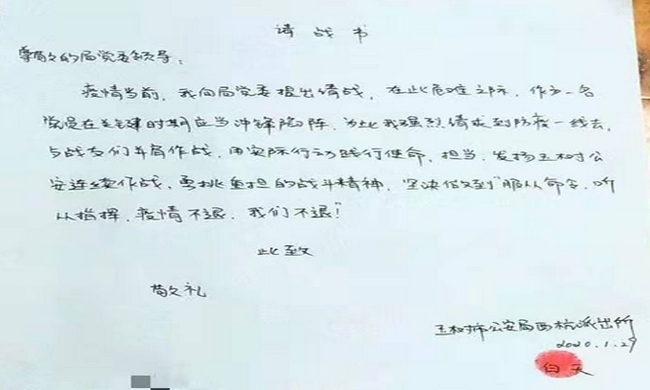 请战书
尊敬的局党委领导：
疫情当前，我向局党委提出请战，在此危难之际，作为一名
党员在关键时期应当冲锋陷阵，为此我强烈请求到防疫一线去，
与战友们并肩作战，用实际行动践行使命，担当，发扬玉树公
安连续作战，勇挑重担的战斗精神，坚决做到“服从命令，听
从指挥，疫情不退，我们不退！”
此致
敬礼
玉树市公安局西杭派出所
2020.1.29
白天